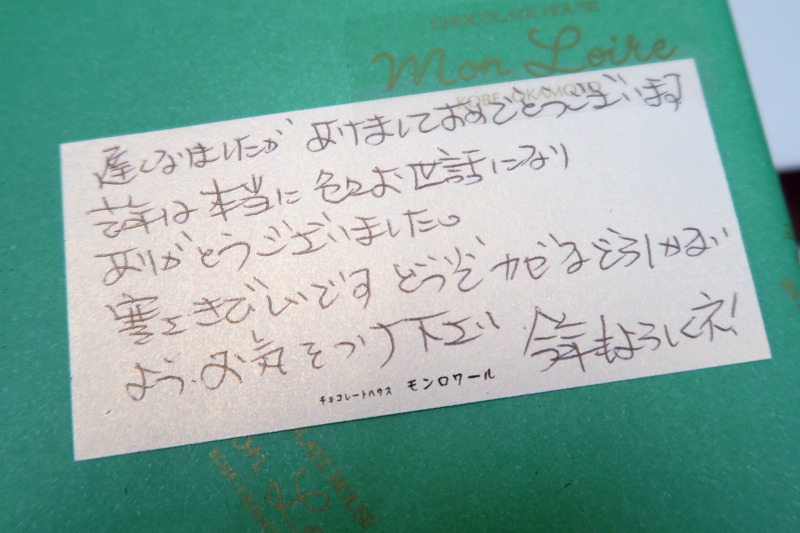 CHOCOLATE HOUSE
Mon Loire
KOBE OKAMOTO
遅くなりましたが あけましておめでとうございます
昨年は本当に色々お世話になり
ありがとうございました。
寒さきびしいです どうぞ カゼなどひかない
よう、お気をつけ下さい 今年もよろしくネ!
チョコレートハウス モンロワール